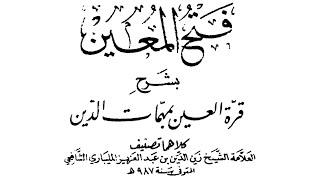 فتح المعين
بشرح
قرة العين بمهمات الدين
كلاهما تصنيف
العلامة الشيخ زين الدين بن عبد العزيز المليباري الشافعي
المتوفى سنة ٩٨٧ هـ